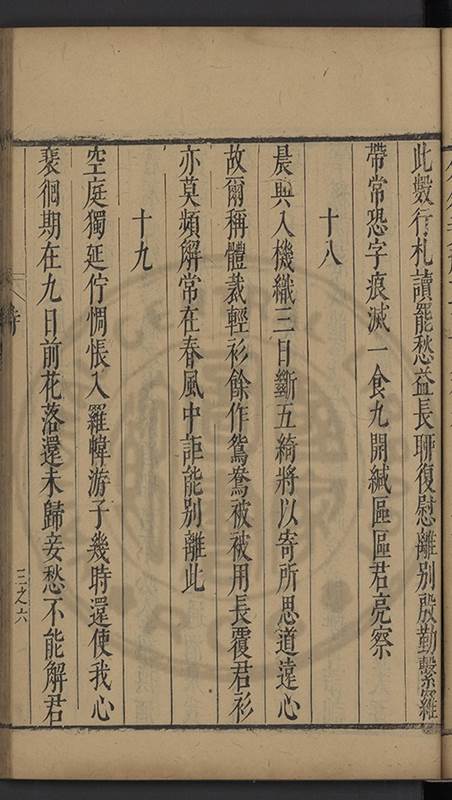 此數行札讀罷愁益長聊復慰離别殷勤繫羅
帶常恐字痕滅一食九開緘區區君亮察
十八
晨興入機織三日斷五綺將以寄所思道遠心
故爾稱體裁輕衫餘作鴛鴦被被用長覆君衫
亦莫頻解常在春風中詎能别離此
十九
空庭獨延佇惆悵入羅幃游子幾時還使我心
裴徊期在九日前花落還未歸妾愁不能解君
詩
三之六